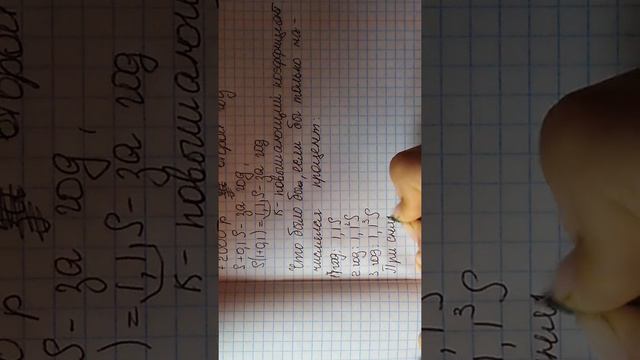 +2000 р второй год
S+0,1S - за год,
S(1+0,1) = 1,1S - за год
к - повышающий коэффициент
Что было бы, если бы только на-
числялся процент:
1 год: 1,1S
2 год: 1,1²S
3 год: 1,1³S
При